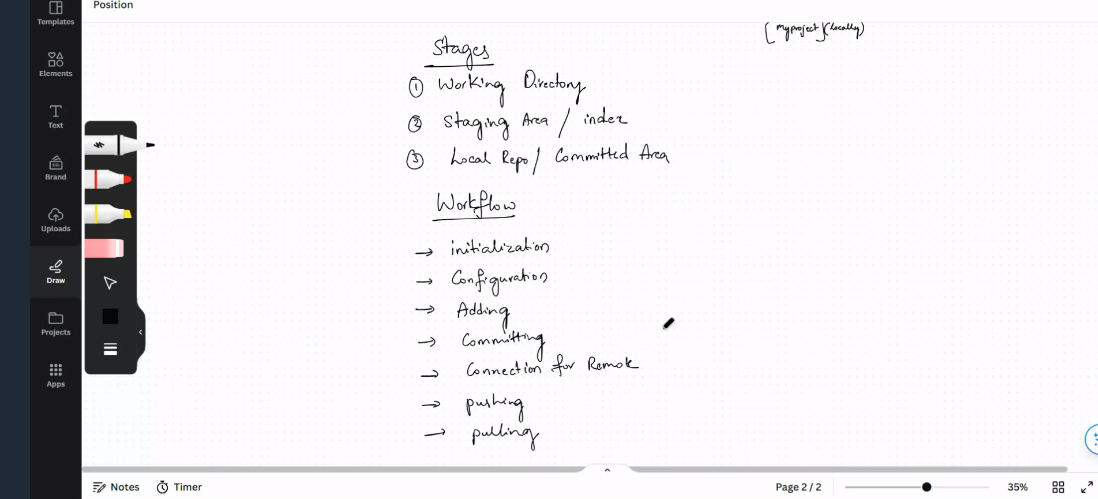 Position
Templates
Elements
Text
Brand
Uploads
Draw
Projects
Apps
[myproject](locally)
Stages
① Working Directory
② Staging Area / index
③ Local Repo / Committed Area
Workflow
→ initialization
→ Configuration
→ Adding
→ Committing
→ Connection for Remote
→ pushing
→ pulling
Notes
Timer
Page 2 / 2
35%